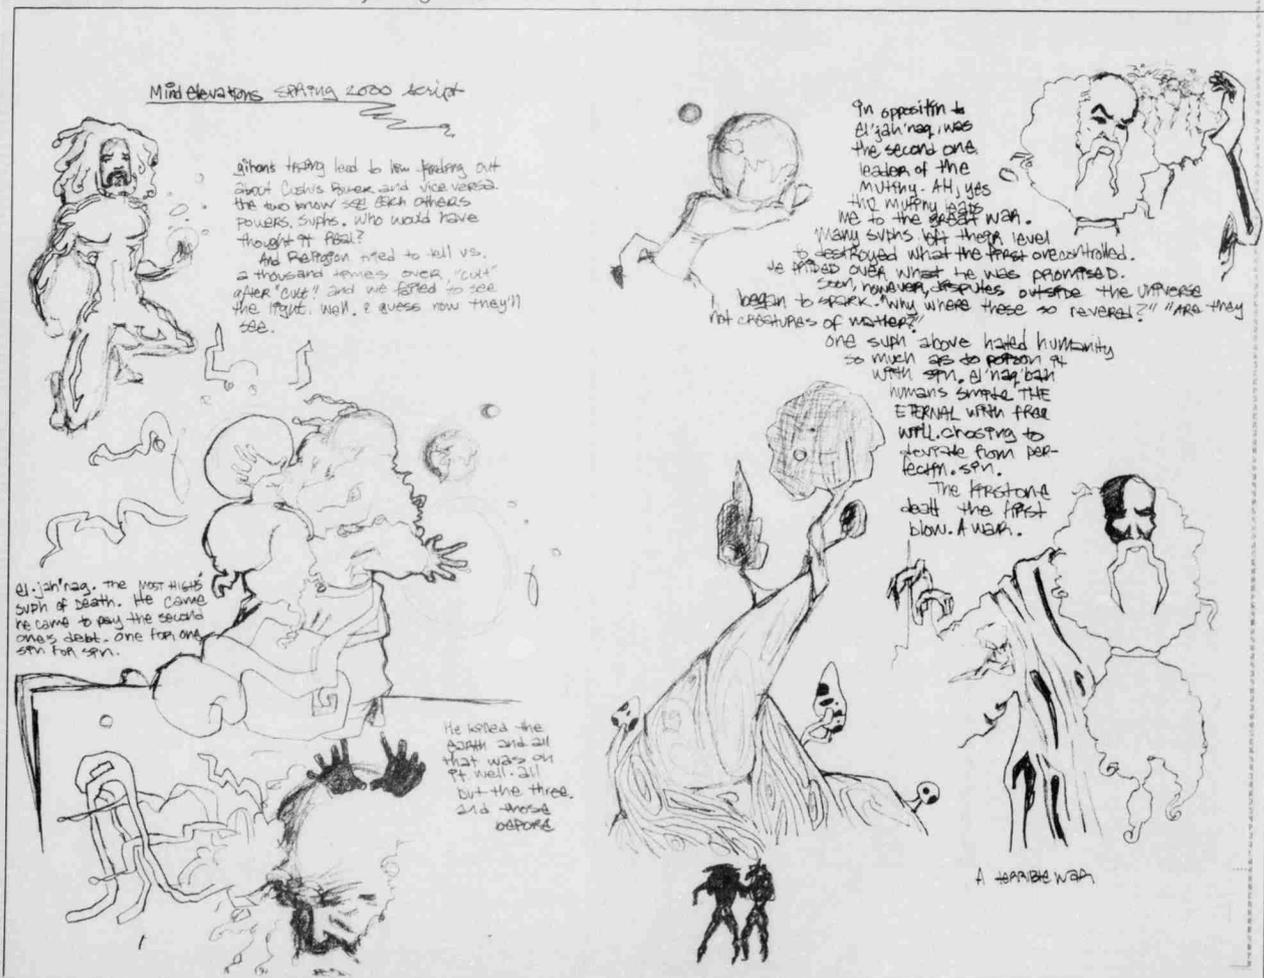 Mind elevations spring 2000 script
gihons trying lead to him finding out
about Cush's Power and vice versa.
the two know see each others
powers. suphs. Who would have
thought it Real?
And Religion tried to tell us.
a thousand times over. "cult"
after "cult" and we failed to see
the light. Well, I guess now they'll
see.
el.jah'naq. The MOST HIGHS'
suph of Death. He came
he came to pay the second
one's debt. one for one
sin for sin.
He killed the
earth and all
that was on
it well. all
but the three.
and those
before
In oppositin to
el'jah'naq, was
the second one
leader of the
mutiny. AH, yes
this mutiny leads
me to the great war.
Many suphs left their level
to destroyed what the first onecontrolled.
He prided over what he was promised.
soon, however, disputes outside the universe
began to spark. "Why where these so revered?" "Are they
not creatures of matter?"
one suph above hated humanity
so much as to poison it
with sin. el'naq'bah
humans smote THE
ETERNAL with free
will. chosing to
deviate from per-
fectin. sin.
The firstone
dealt the first
blow. A war.
A terrible war